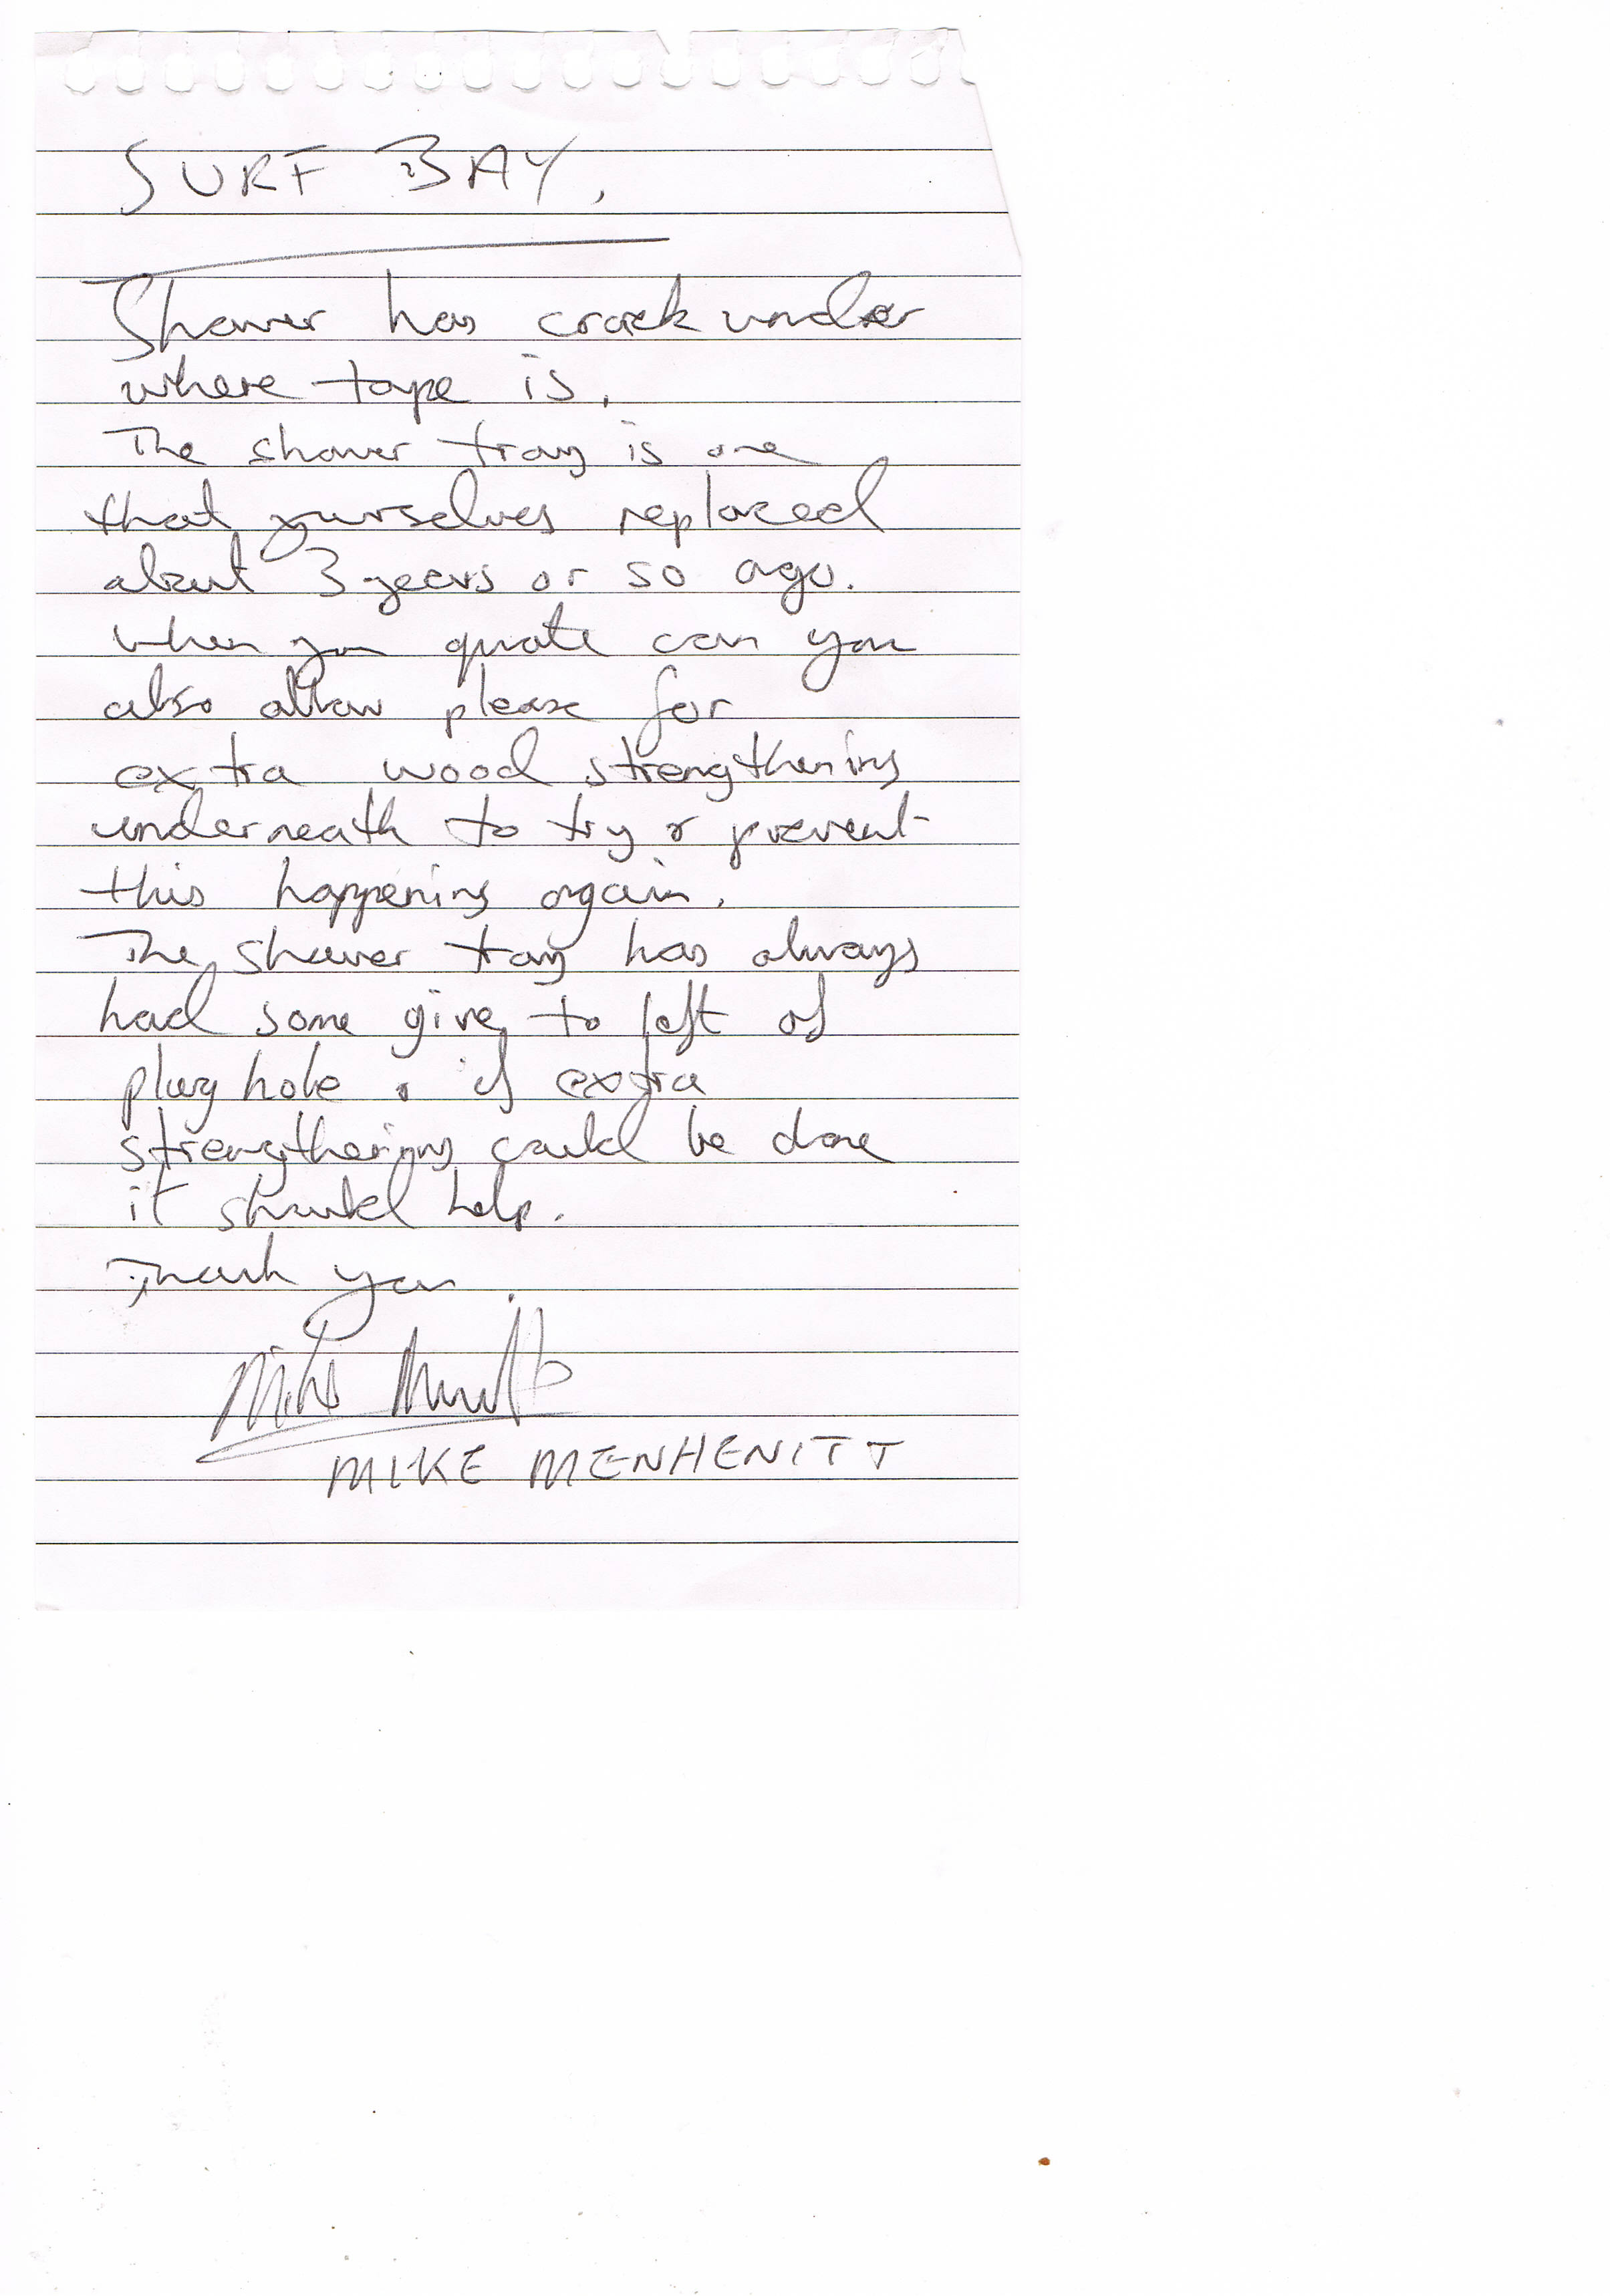 SURF BAY,
Shower has crack under
where tape is.
The shower tray is one
that yourselves replaced
about 3 years or so ago.
When you quote can you
also allow please for
extra wood strengthening
underneath to try & prevent
this happening again.
The shower tray has always
had some give to left of
plug hole. if extra
strengthening could be done
it should help.
Thank you.
MIKE MENHENITT